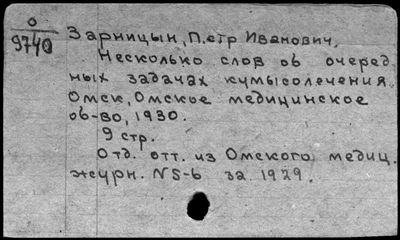 О
9740
Зарницын, Петр Иванович,
Несколько слов об очеред
ных задачах кумысолечения.
Омск, Омское медицинское
об-во, 1930.
9 стр.
Отд. отт. из Омского медиц.
журн. N5-6 за 1929.